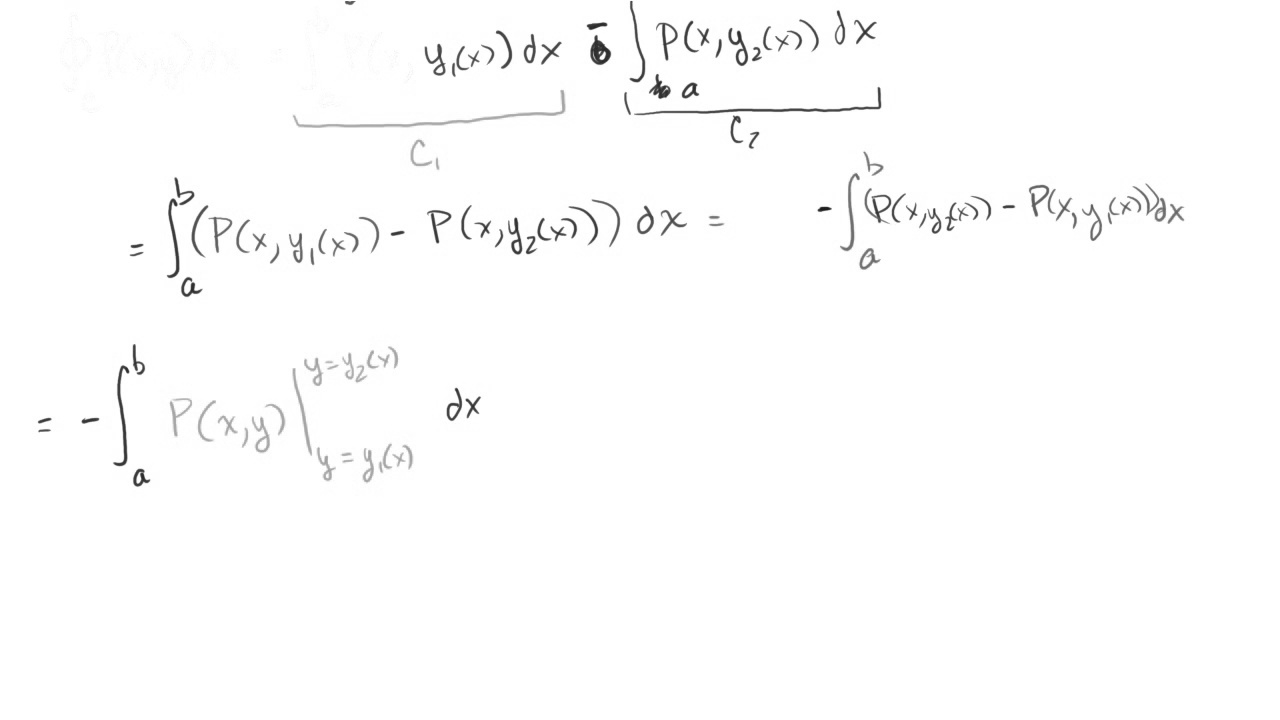 ∮_c P(x,y) dx = ∫_a^b P(x, y₁(x)) dx - ∫_a P(x, y₂(x)) dx
C₁ C₂
= ∫_a^b (P(x, y₁(x)) - P(x, y₂(x))) dx = - ∫_a^b (P(x, y₂(x)) - P(x, y₁(x))) dx
= - ∫_a^b P(x,y) |_{y = y₁(x)}^{y = y₂(x)} dx